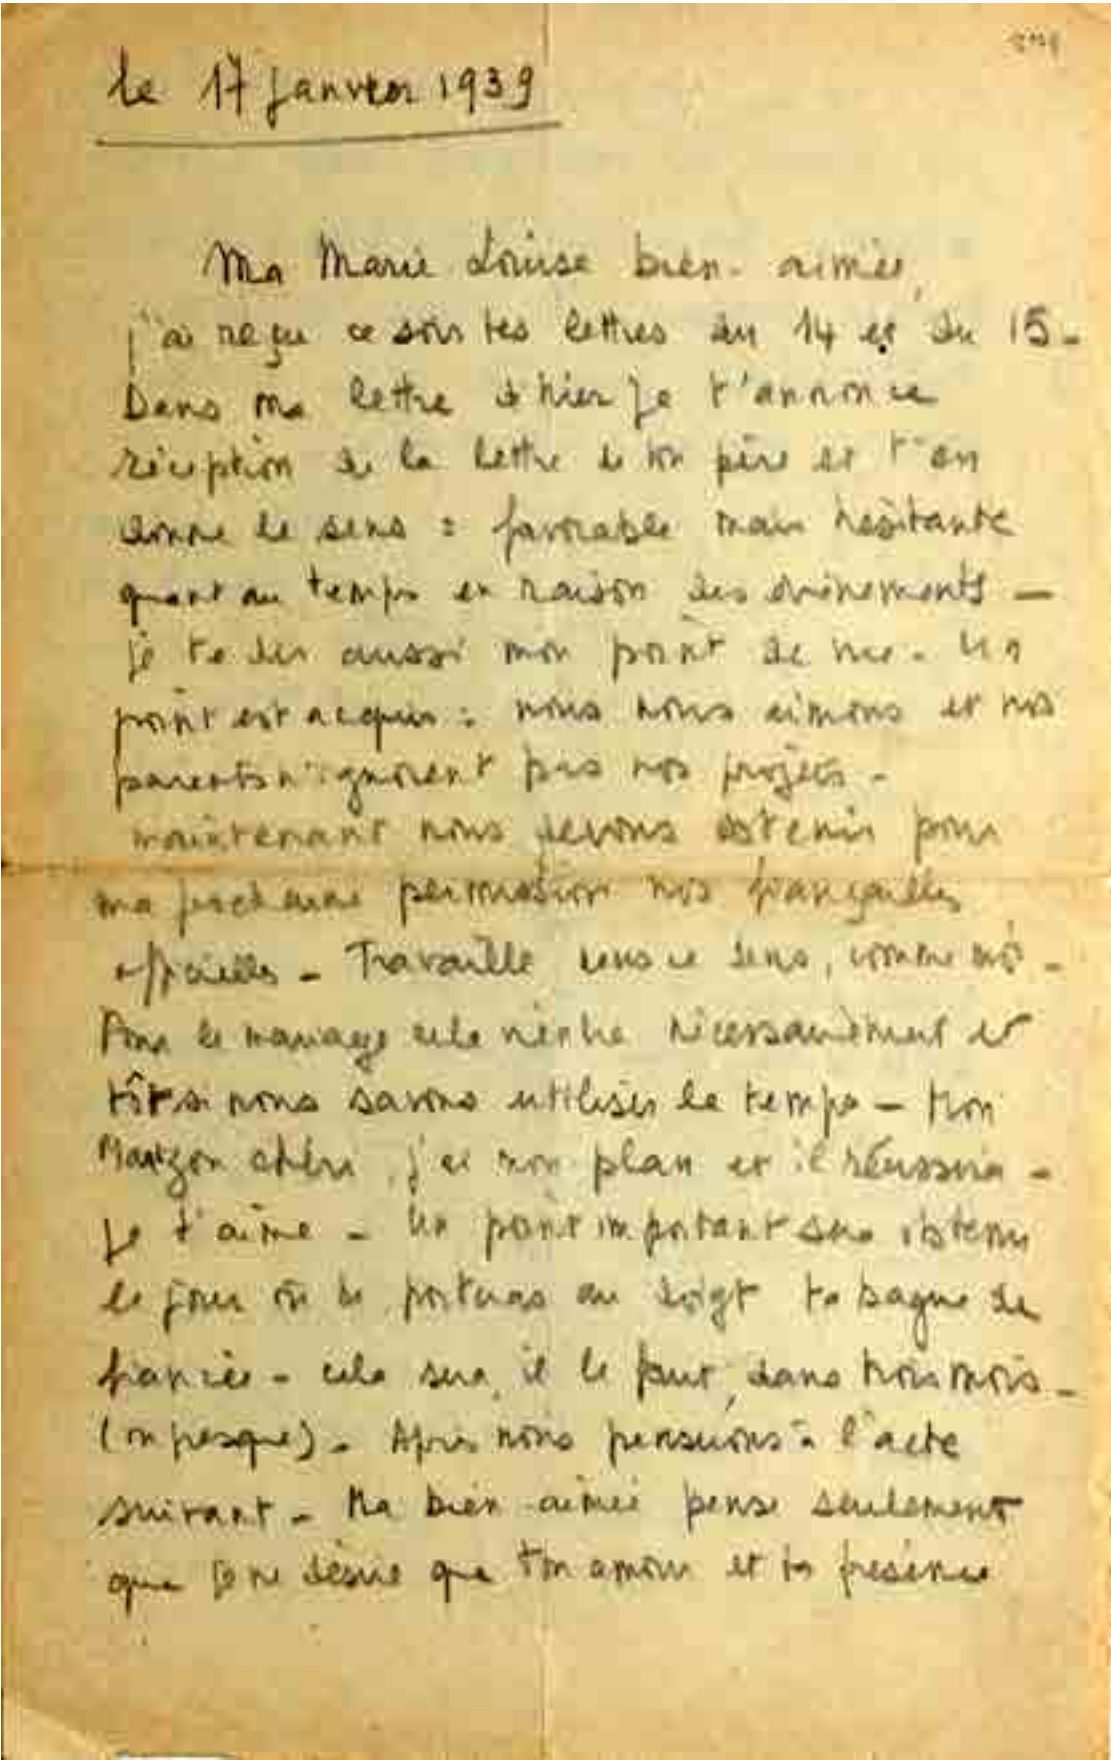 le 17 janvier 1939
Ma Marie Louise bien-aimée,
j'ai reçu ce soir tes lettres du 14 et du 15-
Dans ma lettre d'hier je t'annonce
réception de la lettre de ton père et t'en
donne le sens : favorable mais hésitante
quant au temps en raison des évènements —
je te dis aussi mon point de vue. Un
point est acquis : nous nous aimons et nos
parents n'ignorent pas nos projets -
maintenant nous devons obtenir pour
ma prochaine permission nos fiançailles
officielles - Travaille dans ce sens, comme moi -
Pour le mariage cela viendra nécessairement et
tôt si nous savons utiliser le temps - Mon
chéri, j'ai mon plan et il réussira -
Je t'aime - Un point important sera obtenu
le jour où tu porteras au doigt ta bague de
fiancée - cela sera, il le faut, dans trois mois -
(ou presque) - Après nous penserons à l'acte
suivant - Ma bien-aimée pense seulement
que je ne désire que ton amour et ta présence